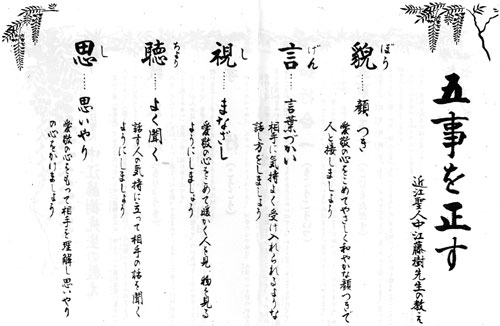 五事を正す
近江聖人中江藤樹先生の教え
貌 ぼう …… 顔つき
愛敬の心をこめてやさしく和やかな顔つきで
人と接しましょう
言 げん …… 言葉づかい
相手に気持よく受け入れられるような
話し方をしましょう
視 し …… まなざし
愛敬の心をこめて暖かく人を見、物を見る
ようにしましょう
聴 ちょう …… よく聞く
話す人の気持に立って相手の話を聞く
ようにしましょう
思 し …… 思いやり
愛敬の心をもって相手を理解し思いやり
の心をかけましょう